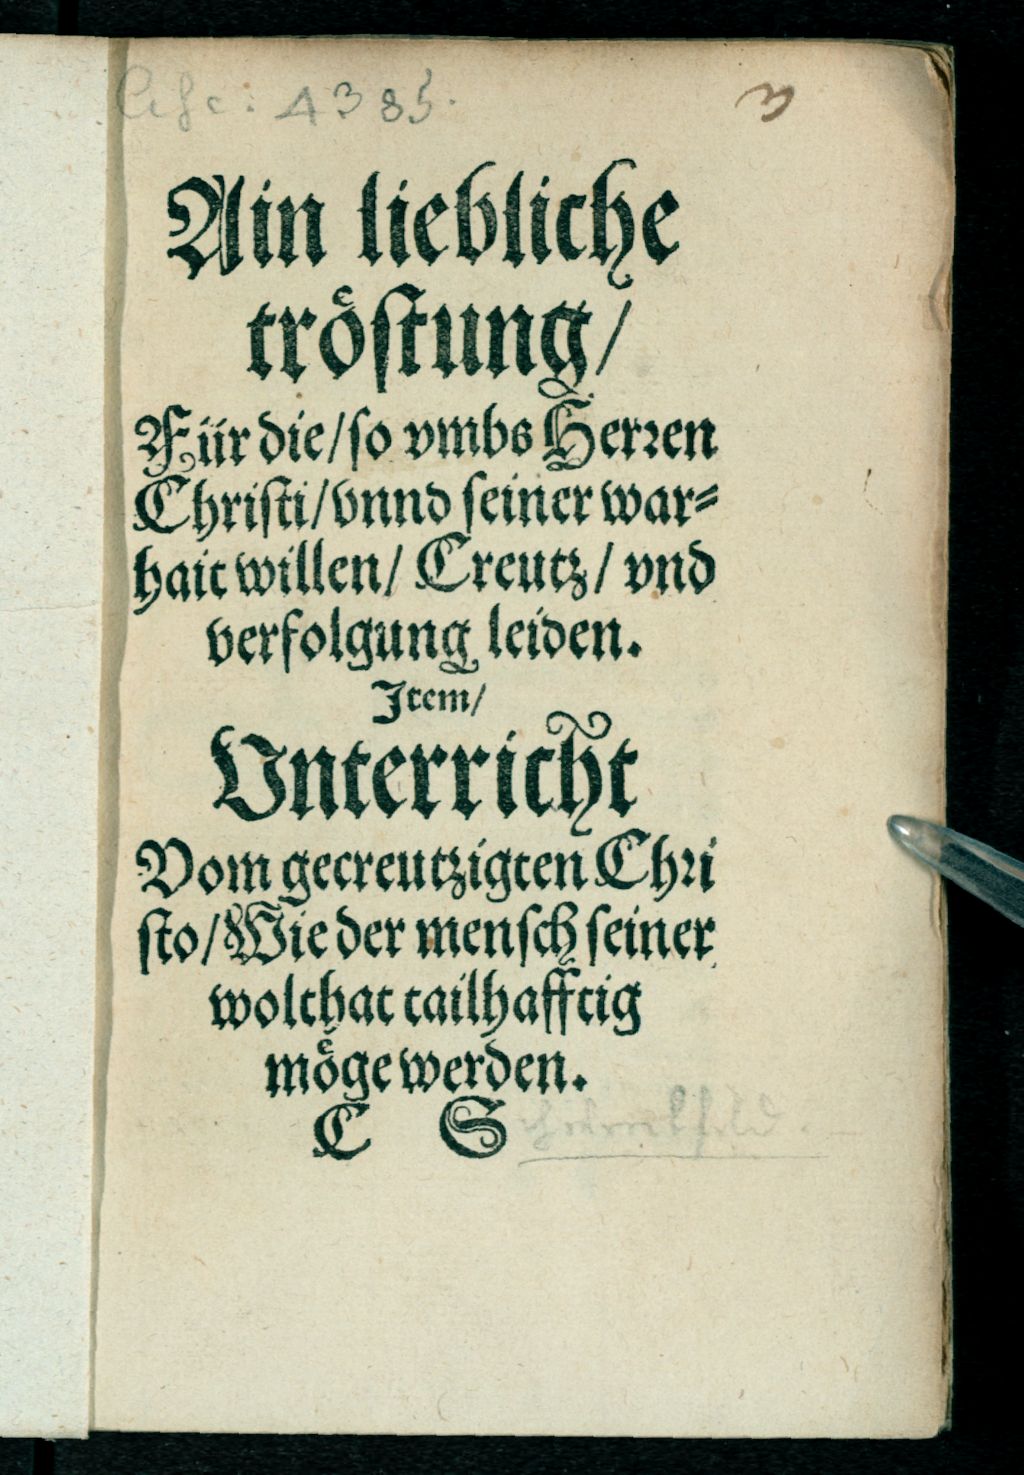 4385.
3
Ain liebliche
troͤstung/
Für die/so vmbs Herren
Christi/vnnd seiner war⸗
hait willen/ Creutz/ vnd
verfolgung leiden.
Item/
Vnterricht
Vom gecreutzigten Chri
sto/Wie der mensch seiner
wolthat tailhafftig
moͤge werden.
C S